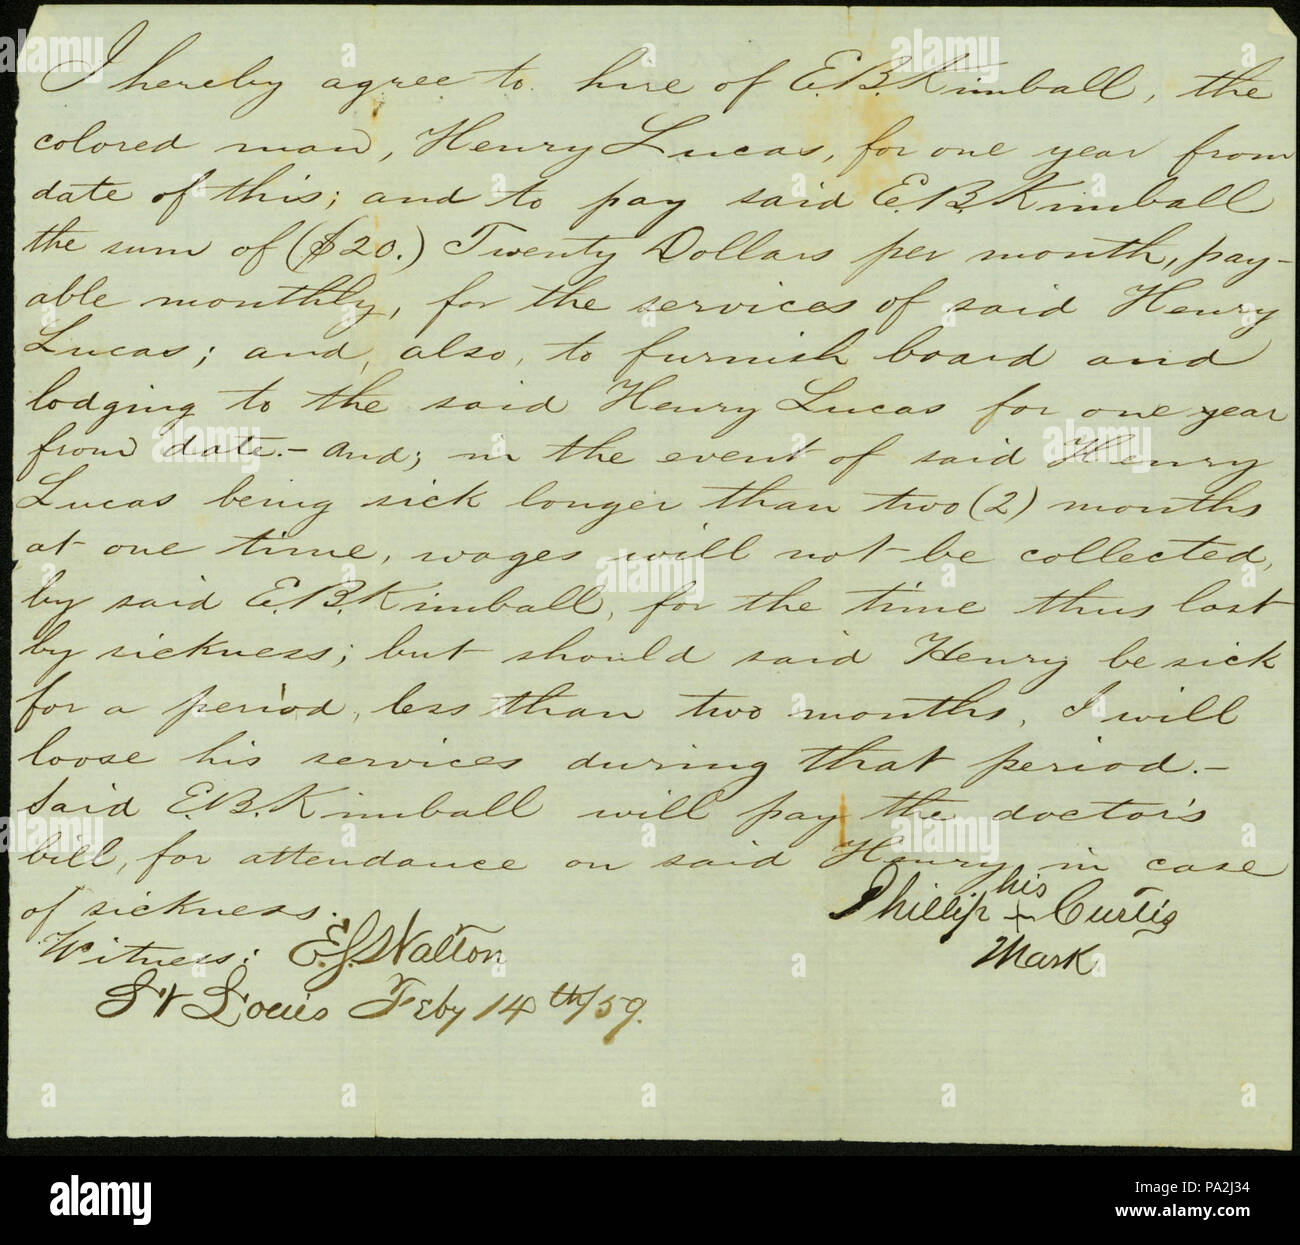 I hereby agree to hire of E.B. Kimball, the
colored man, Henry Lucas, for one year from
date of this; and to pay said E.B. Kimball
the sum of ($20.) Twenty Dollars per month, pay-
able monthly, for the services of said Henry
Lucas; and, also, to furnish board and
lodging to the said Henry Lucas for one year
from date. - And; in the event of said Henry
Lucas being sick longer than two (2) months
at one time, wages will not be collected,
by said E.B. Kimball, for the time thus lost
by sickness; but should said Henry be sick
for a period, less than two months, I will
loose his services during that period. -
Said E.B. Kimball will pay the doctor's
bill, for attendance on said Henry, in case
of sickness.
Phillip his + Curtis
Mark
Witness: E.J. Walton
St Louis Feby 14th/59.
alamy
PA2J34
www.alamy.com